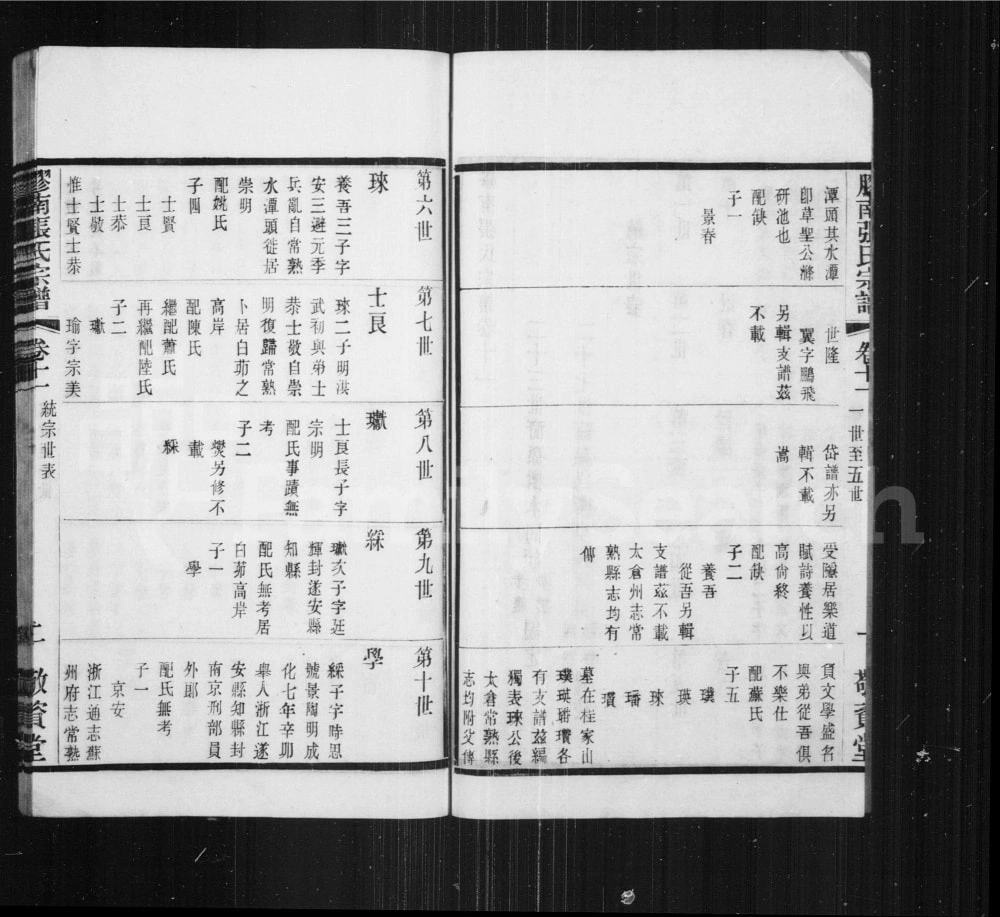 膠南張氏宗譜
卷十一
一世至五世
一
敬賓堂
潭頭其水潭
卽草聖公滌
研池也
配缺
子一
景春
世隆
翼字鵬飛
另輯支譜茲
不載
岱譜亦另
輯不載
嵩
受隱居樂道
賦詩養性以
高尙終
配缺
子二
養吾
從吾另輯
支譜茲不載
太倉州志常
熟縣志均有
傳
負文學盛名
與弟從吾俱
不樂仕
配蘇氏
子五
璞
瑛
琜
璠
瓚
墓在桂家山
璞瑛璠瓚各
有支譜茲編
獨表琜公後
太倉常熟縣
志均附父傳
第六世
琜
養吾三子字
安三避元季
兵亂自常熟
水潭頭徙居
崇明
配姚氏
子四
士賢
士良
士恭
士敬
惟士賢士恭
第七世
士良
琜二子明洪
武初與弟士
恭士敬自崇
明復歸常熟
卜居白茆之
高岸
配陳氏
繼配蕭氏
再繼配陸氏
子二
瓛
瑜字宗美
第八世
瓛
士良長子字
宗明
配氏事蹟無
考
子二
爕另修不
載
綵
第九世
綵
瓛次子字廷
輝封遂安縣
知縣
配氏無考居
白茆高岸
子一
學
第十世
學
綵子字時思
號景陶明成
化七年辛卯
舉人浙江遂
安縣知縣封
南京刑部員
外郎
配氏無考
子一
京安
浙江通志蘇
州府志常熟
膠南張氏宗譜
卷十一
統宗世表
二
敬賓堂